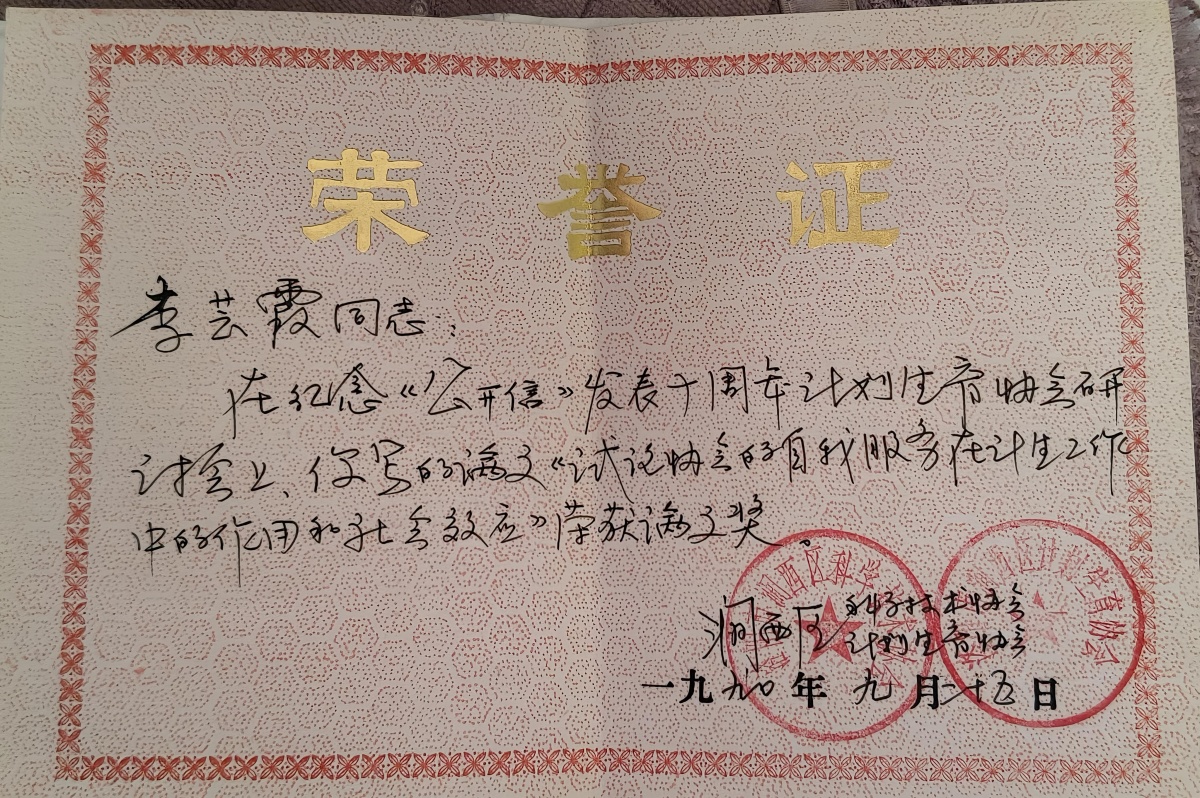 荣誉证
李芸霞同志:
在纪念《公开信》发表十周年计划生育协会研
讨会上、你写的论文《试论协会的自我服务在计生工作
中的作用和社会效应》荣获论文奖。
涧西区科学技术协会
计划生育协会
一九九〇年九月二十五日
涧西区科学
涧西区计划生育协会